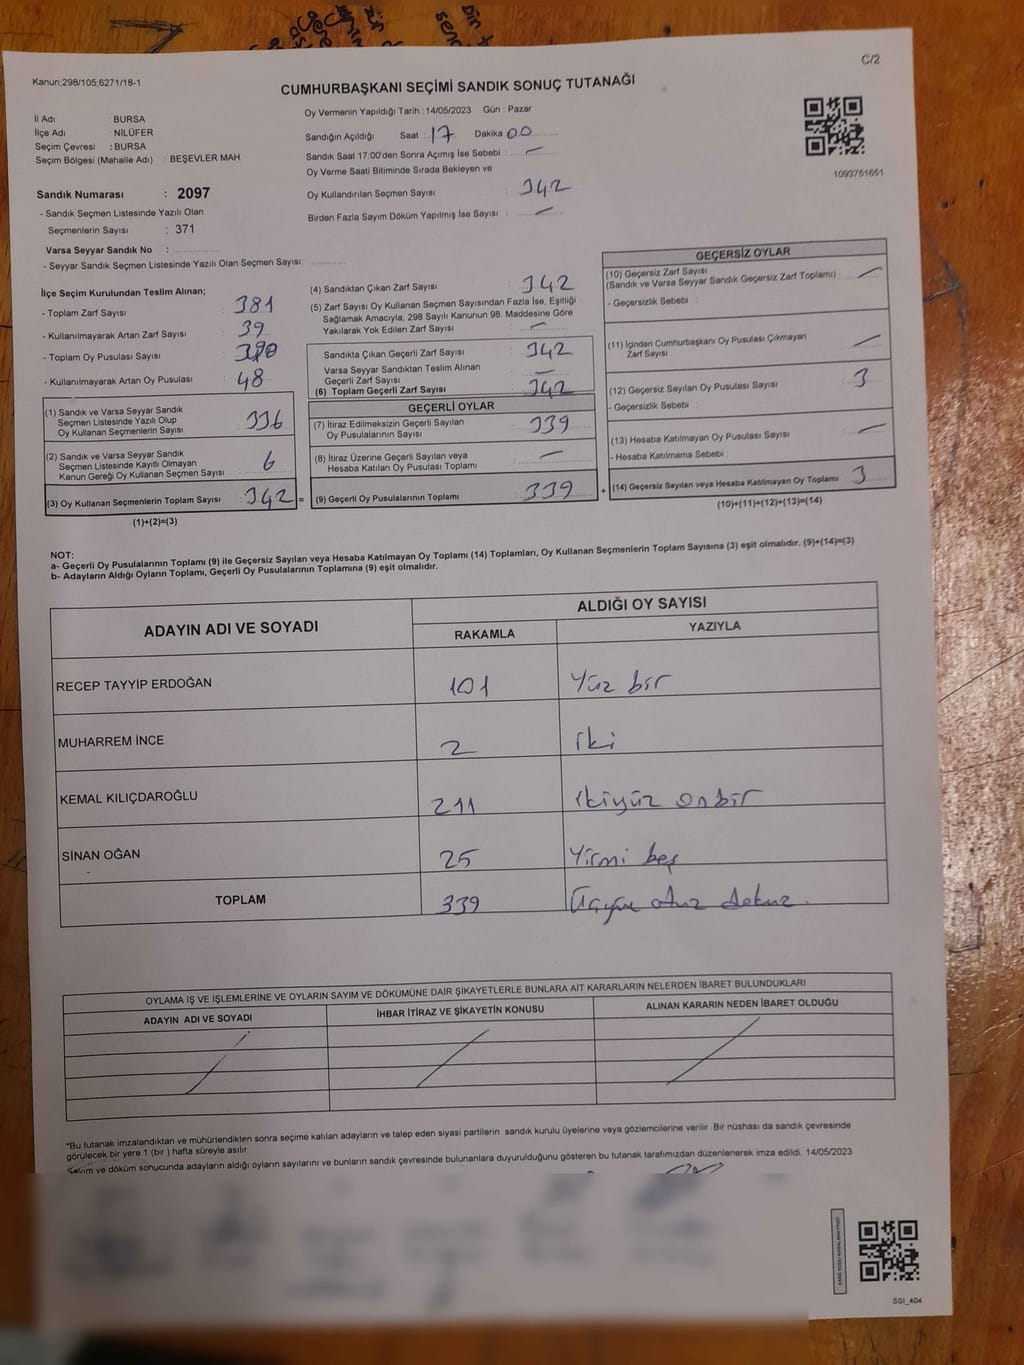 C/2
Kanun;298/105;6271/18-1
CUMHURBAŞKANI SEÇİMİ SANDIK SONUÇ TUTANAĞI
İl Adı : BURSA
İlçe Adı : NİLÜFER
Seçim Çevresi : BURSA
Seçim Bölgesi (Mahalle Adı) : BEŞEVLER MAH.
Oy Vermenin Yapıldığı Tarih : 14/05/2023 Gün : Pazar
Sandığın Açıldığı Saat : 17 Dakika 00
Sandık Saat 17:00'den Sonra Açımış İse Sebebi : —
Oy Verme Saati Bitiminde Sırada Bekleyen ve
Oy Kullandırılan Seçmen Sayısı : 342
Birden Fazla Sayım Döküm Yapılmış İse Sayısı : —
1093751651
Sandık Numarası : 2097
- Sandık Seçmen Listesinde Yazılı Olan
Seçmenlerin Sayısı : 371
Varsa Seyyar Sandık No :
- Seyyar Sandık Seçmen Listesinde Yazılı Olan Seçmen Sayısı:
İlçe Seçim Kurulundan Teslim Alınan;
- Toplam Zarf Sayısı : 381
- Kullanılmayarak Artan Zarf Sayısı : 39
- Toplam Oy Pusulası Sayısı :
- Kullanılmayarak Artan Oy Pusulası : 48
(1) Sandık ve Varsa Seyyar Sandık
Seçmen Listesinde Yazılı Olup
Oy Kullanan Seçmenlerin Sayısı : 336
(2) Sandık ve Varsa Seyyar Sandık
Seçmen Listesinde Kayıtlı Olmayan
Kanun Gereği Oy Kullanan Seçmen Sayısı : 6
(3) Oy Kullanan Seçmenlerin Toplam Sayısı : 342 =
(1)+(2)=(3)
(4) Sandıktan Çıkan Zarf Sayısı : 342
(5) Zarf Sayısı Oy Kullanan Seçmen Sayısından Fazla İse, Eşitliği
Sağlamak Amacıyla; 298 Sayılı Kanunun 98. Maddesine Göre
Yakılarak Yok Edilen Zarf Sayısı : —
Sandıkta Çıkan Geçerli Zarf Sayısı : 342
Varsa Seyyar Sandıktan Teslim Alınan
Geçerli Zarf Sayısı : —
(6) Toplam Geçerli Zarf Sayısı : 342
GEÇERLİ OYLAR
(7) İtiraz Edilmeksizin Geçerli Sayılan
Oy Pusulalarının Sayısı : 339
(8) İtiraz Üzerine Geçerli Sayılan veya
Hesaba Katılan Oy Pusulası Toplamı : —
(9) Geçerli Oy Pusulalarının Toplamı : 339 +
GEÇERSİZ OYLAR
(10) Geçersiz Zarf Sayısı
(Sandık ve Varsa Seyyar Sandık Geçersiz Zarf Toplamı) : —
- Geçersizlik Sebebi :
(11) İçinden Cumhurbaşkanı Oy Pusulası Çıkmayan
Zarf Sayısı : —
(12) Geçersiz Sayılan Oy Pusulası Sayısı : 3
- Geçersizlik Sebebi :
(13) Hesaba Katılmayan Oy Pusulası Sayısı : —
- Hesaba Katılmama Sebebi :
(14) Geçersiz Sayılan veya Hesaba Katılmayan Oy Toplamı : 3
(10)+(11)+(12)+(13)=(14)
NOT:
a- Geçerli Oy Pusulalarının Toplamı (9) ile Geçersiz Sayılan veya Hesaba Katılmayan Oy Toplamı (14) Toplamları, Oy Kullanan Seçmenlerin Toplam Sayısına (3) eşit olmalıdır. (9)+(14)=(3)
b- Adayların Aldığı Oyların Toplamı, Geçerli Oy Pusulalarının Toplamına (9) eşit olmalıdır.
ADAYIN ADI VE SOYADI ALDIĞI OY SAYISI
RAKAMLA YAZIYLA
RECEP TAYYİP ERDOĞAN 101 Yüz bir
MUHARREM İNCE 2 iki
KEMAL KILIÇDAROĞLU 211 ikiyüz onbir
SİNAN OĞAN 25 Yirmi beş
TOPLAM 339 Üçyüz otuz dokuz
OYLAMA İŞ VE İŞLEMLERİNE VE OYLARIN SAYIM VE DÖKÜMÜNE DAİR ŞİKAYETLERLE BUNLARA AİT KARARLARIN NELERDEN İBARET BULUNDUKLARI
ADAYIN ADI VE SOYADI İHBAR İTİRAZ VE ŞİKAYETİN KONUSU ALINAN KARARIN NEDEN İBARET OLDUĞU
*Bu tutanak imzalandıktan ve mühürlendikten sonra seçime katılan adayların ve talep eden siyasi partilerin sandık kurulu üyelerine veya gözlemcilerine verilir. Bir nüshası da sandık çevresinde
görülecek bir yere 1 (bir ) hafta süreyle asılır.
Sayım ve döküm sonucunda adayların aldığı oyların sayılarını ve bunların sandık çevresinde bulunanlara duyurulduğunu gösteren bu tutanak tarafımızdan düzenlenerek imza edildi. 14/05/2023
SSI_404